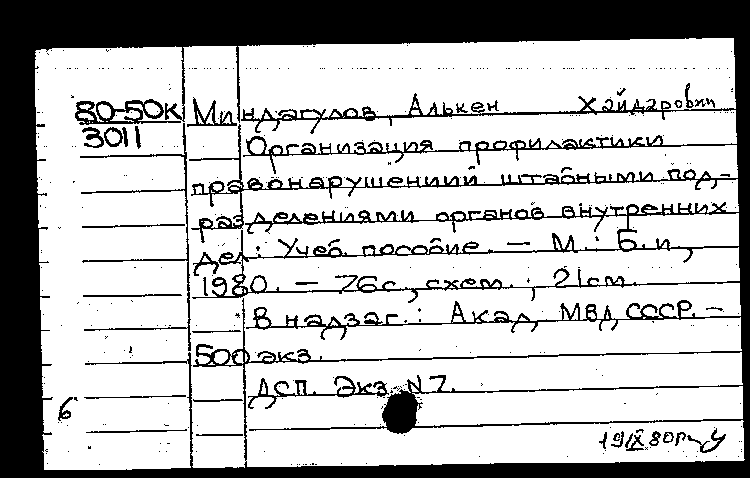 80-50к Миндагулов, Алькен Хайдарович
3011 Организация профилактики
правонарушениий штабными под-
разделениями органов внутренних
дел: Учеб. пособие. — М.: Б.и,
1980. — 76с., схем. ; 21см.
В надзаг.: Акад, МВД СССР. —
500 экз.
ДСП. Экз. N 7.
6
19/IX 80г